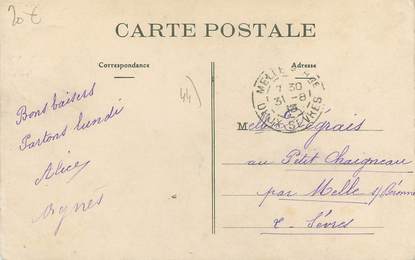 20 €
CARTE POSTALE
Correspondance
Adresse
MELLE
7 30
31 - 8
DEUX-SÈVRES
44)
Bons baisers
Partons lundi
Alice
Agnès
Melle Legrais
au Petit Chaigneau
par Melle s/ Béronne
2 - Sèvres